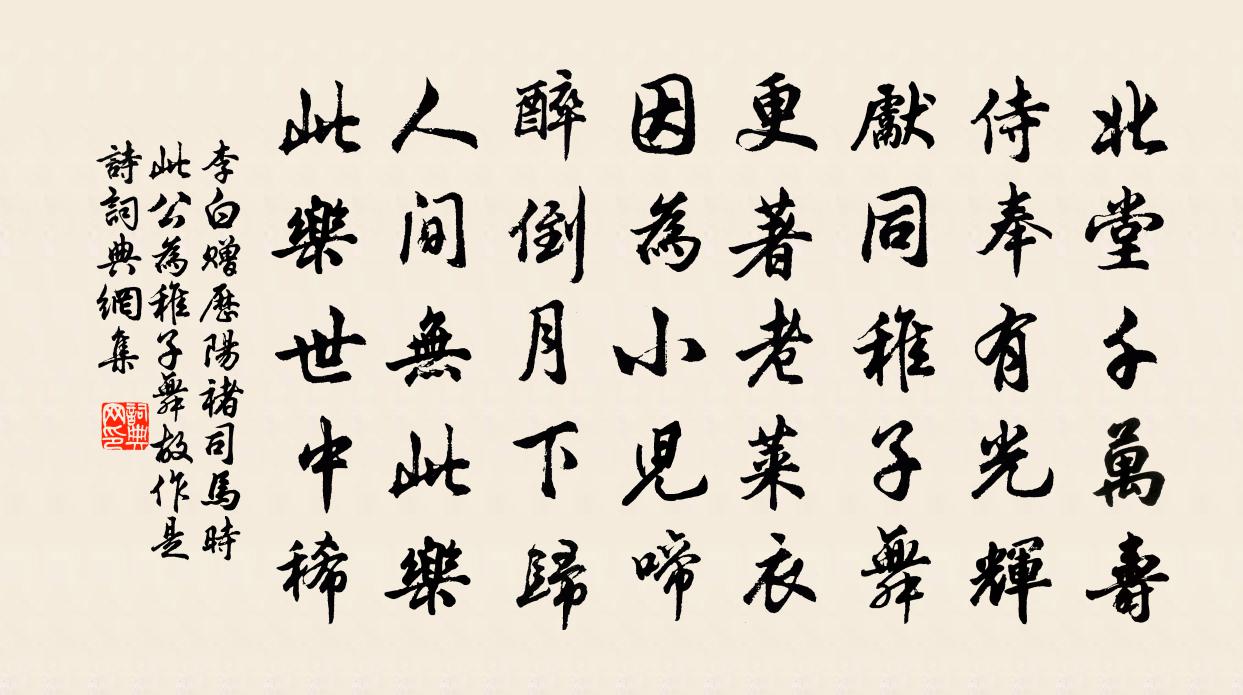 北堂千萬壽
侍奉有光輝
獻同稚子舞
更著老萊衣
因為小兒啼
醉倒月下歸
人間無此樂
此樂世中稀
李白贈歷陽褚司馬時
此公為稚子舞故作是
詩詞典網集
詞典
网印